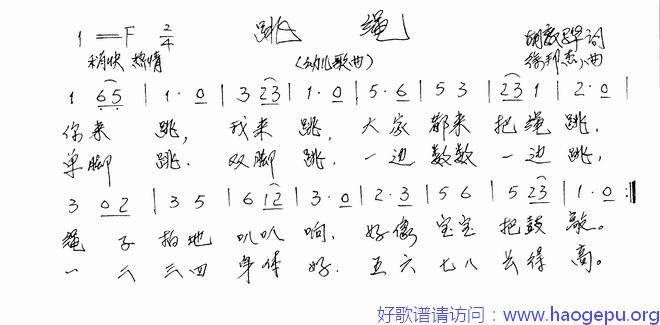 1=F 2/4 跳绳 胡敦骅词
稍快 热情 (幼儿歌曲) 徐邦杰曲
1 65 | 1·0 | 3 23 | 1·0 | 5·6 | 5 3 | 23 1 | 2·0 |
你来 跳, 我来 跳, 大家 都来 把绳 跳,
单脚 跳, 双脚 跳, 一边 数数 一边 跳,
3 02 | 3 5 | 6 12 | 3·0 | 2·3 | 5 6 | 5 23 | 1·0 :|
绳 子 拍地 叭叭 响, 好像 宝宝 把鼓 敲。
一 二 三四 身体 好, 五六 七八 长得 高。
好歌谱请访问:www.haogepu.org